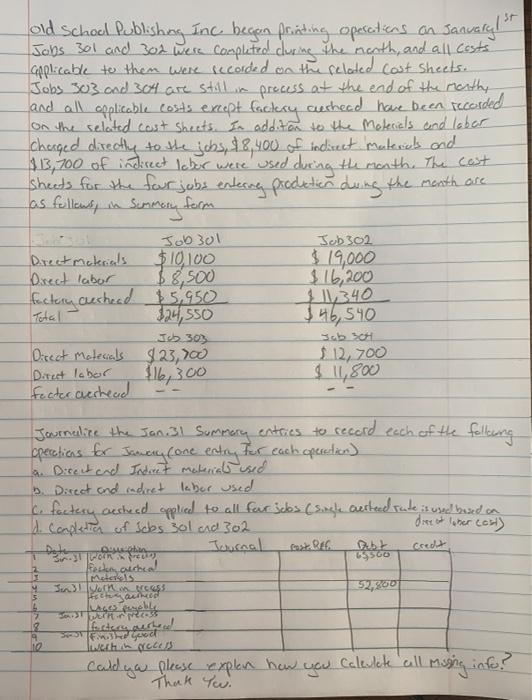 Old School Publishing Inc. began printing operations on January 1st
Jobs 301 and 302 were completed during the month, and all costs
applicable to them were recorded on the related cost sheets.
Jobs 303 and 304 are still in process at the end of the month,
and all applicable costs except factory overhead have been recorded
on the related cost sheets. In addition to the Materials and labor
charged directly to the jobs, $8,400 of indirect materials and
$13,700 of indirect labor were used during the month. The cost
sheets for the four jobs entering production during the month are
as follows, in Summary form
Job 301 Job 302
Direct materials $10,100 $19,000
Direct labor $8,500 $16,200
factory overhead $5,950 $11,340
Total $24,550 $46,540
Job 303 Job 304
Direct Materials $23,700 $12,700
Direct labor $16,300 $11,800
factor overhead -- --
Journalize the Jan.31 Summary entries to record each of the following
operations for January (one entry for each operation)
a. Direct and Indirect materials used
b. Direct and indirect labor used
c. factory overhead applied to all four jobs (single overhead rate is used based on
direct labor cost)
d. Completion of Jobs 301 and 302
Journal
Date Description Post Reff. Debt Credit
1 Jan.31 Work in process 65,500
2 factory overhead
3 Materials
4 Jan31 Work in process 52,800
5 factory overhead
6 Wages payable
7 Jan 31 Work in process
8 factory overhead
9 Jan 31 finished good
10 Work in process
Could you please explain how you calculate all missing info?
Thank You.